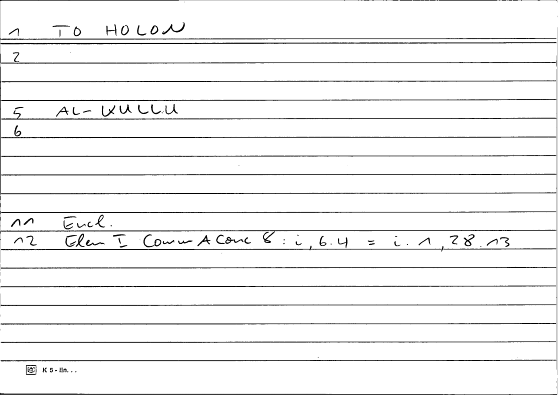 1 TO HOLON
2
5 AL-KULLU
6
11 Eucl.
12 Elem I Comm A Conc 8 : i, 6.4 = i. 1, 28.13
K 5 - lin. . .